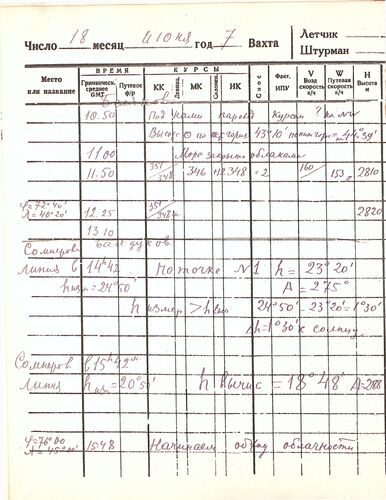 Число 18 месяц июня год 7 Вахта
Летчик
Штурман
Место или название
ВРЕМЯ
Гринвичск. среднее GMT
Путевое ф/р
КУРСЫ
КК
Девиац.
МК
Склонен.
ИК
Снос
Факт. ИПУ
V Возд скорость к/ч
W Путевая скорость к/ч
H Высота м
Байдуков
10.50 Под нами пароход курсом ? на NW
Высота ⊙ по горизонту 43°10' 44°39'
11.00 Море закрыто облаками
11.50 351/348 346 +2 348 +2 160 153 2810
φ=72°40'
λ=40°20' 12.25 351/348 2820
13.10
Байдуков.
Сомнерова
линия в 14ч42 По точке N1 h = 23°20'
hизм = 24°50 A = 275°
h измер > h выч 24°50' - 23°20' = 1°30'
Δh = 1°30' к солнцу
Сомнеров в 15ч42м
линия hизм = 20°50' h вычис = 18°48' A=288
φ=76°00
λ=45°00' 15.48 Начинаем обход облачности